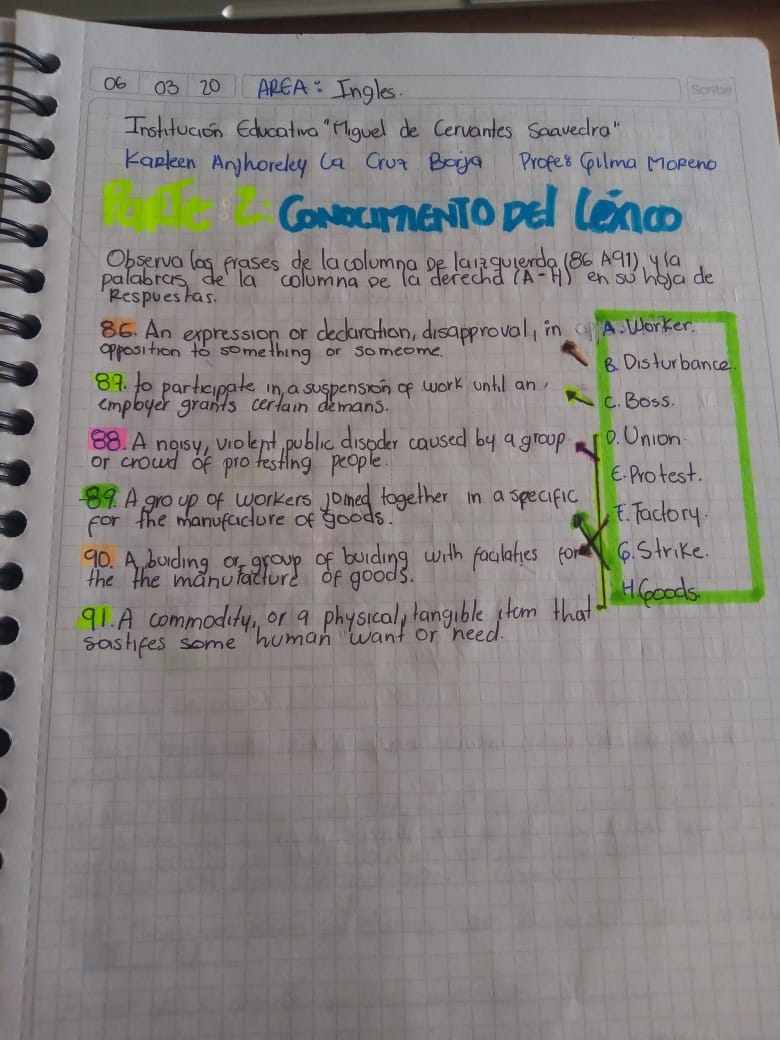 06 03 20 AREA: Ingles.
Scribe
Institución Educativa "Miguel de Cervantes Saavedra"
Karleen Anjhoreley La Cruz Borja Profe: Gilma Moreno
Parte 2: CONOCIMIENTO DEL Léxico
Observa las frases de la columna de la izquierda (86 A 91) y la
palabras de la columna de la derecha (A-H) en su hoja de
Respuestas.
86. An expression or declaration, disapproval, in
opposition to something or someome.
87. to participate in, a suspension of work until an
employer grants certain demans.
88. A noisy, violent, public disoder caused by a group
or crowd of protesting people.
89. A group of workers joined together in a specific
for the manufacture of goods.
90. A buiding or group of buiding with facilaties for
the the manufacture of goods.
91. A commodity, or a physical, tangible item that
sastifes some human want or need.
A. Worker.
B. Disturbance.
C. Boss.
D. Union.
E. Protest.
F. Factory.
G. Strike.
H. Goods.